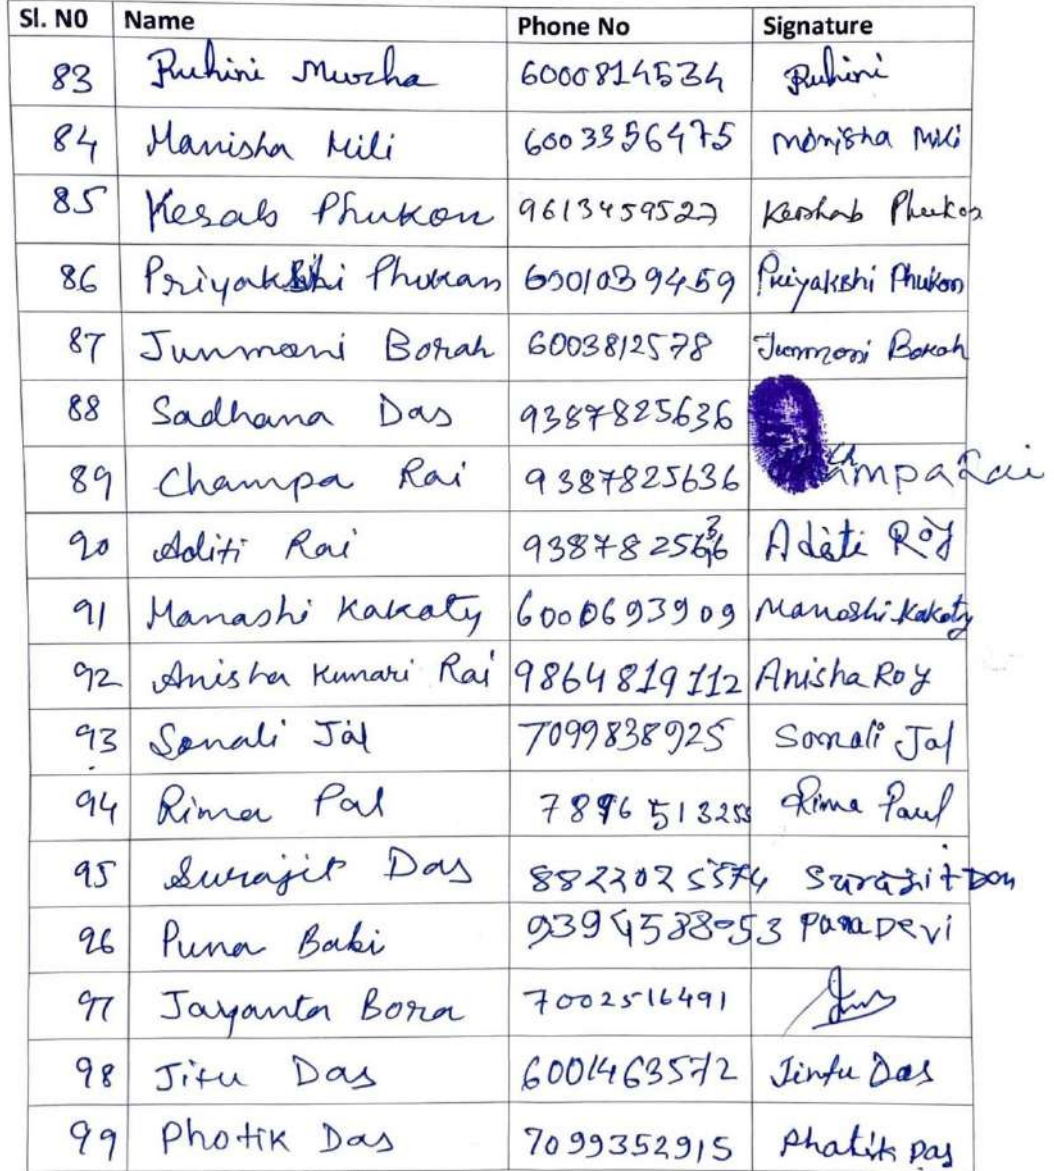 Sl. N0 Name Phone No Signature
83 Ruhini Murha 6000814534 Ruhini
84 Manisha Mili 6003356475 Monisha Mili
85 Kesab Phukon 9613459527 Keshab Phukon
86 Priyakshi Phukan 6001039459 Priyakshi Phukon
87 Junmoni Borah 6003812578 Junmoni Borah
88 Sadhana Das 9387825636
89 Champa Rai 9387825636 Champa Rai
90 Aditi Rai 9387825636 Aditi Roy
91 Manashi Kakaty 6000693909 Manashi Kakoty
92 Anisha Kumari Rai 9864819112 Anisha Roy
93 Sonali Jal 7099838925 Sonali Jal
94 Rima Pal 7896513255 Rima Paul
95 Surajit Das Surajit Das
96 Puna Baki 9394588053 Pana Devi
97 Jayanta Bora 7002516491
98 Jitu Das 6001463572 Jintu Das
99 Photik Das 7099352915 Phatik Das